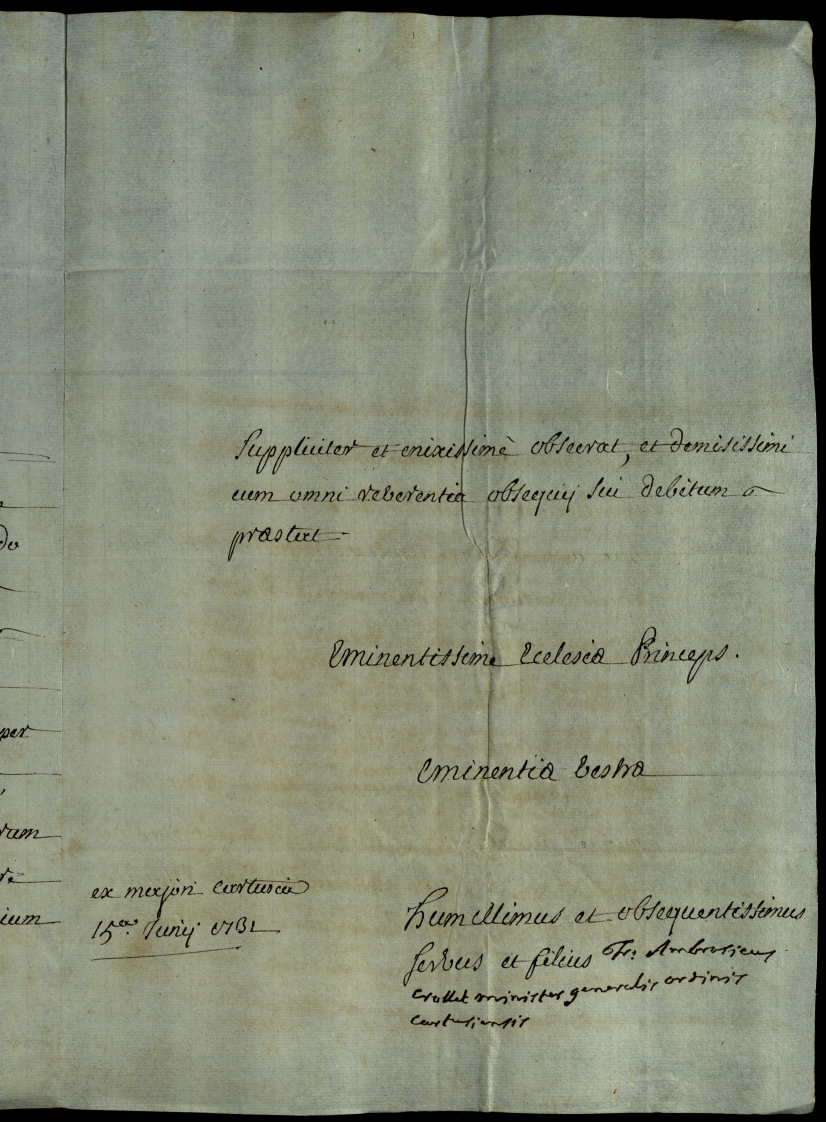 do
per
rum
ium
Suppliciter et enixissimè obsecrat, et demississimi
cum omni reverentia obsequij sui debitum
præstat
Eminentissime Ecclesiæ Princeps.
Eminentiæ Vestræ
ex majori cartusia
15ª Junij 1731
humillimus et obsequentissimus
servus et filius Fr: Ambrosius
Crollet minister generalis ordinis
cartusiensis